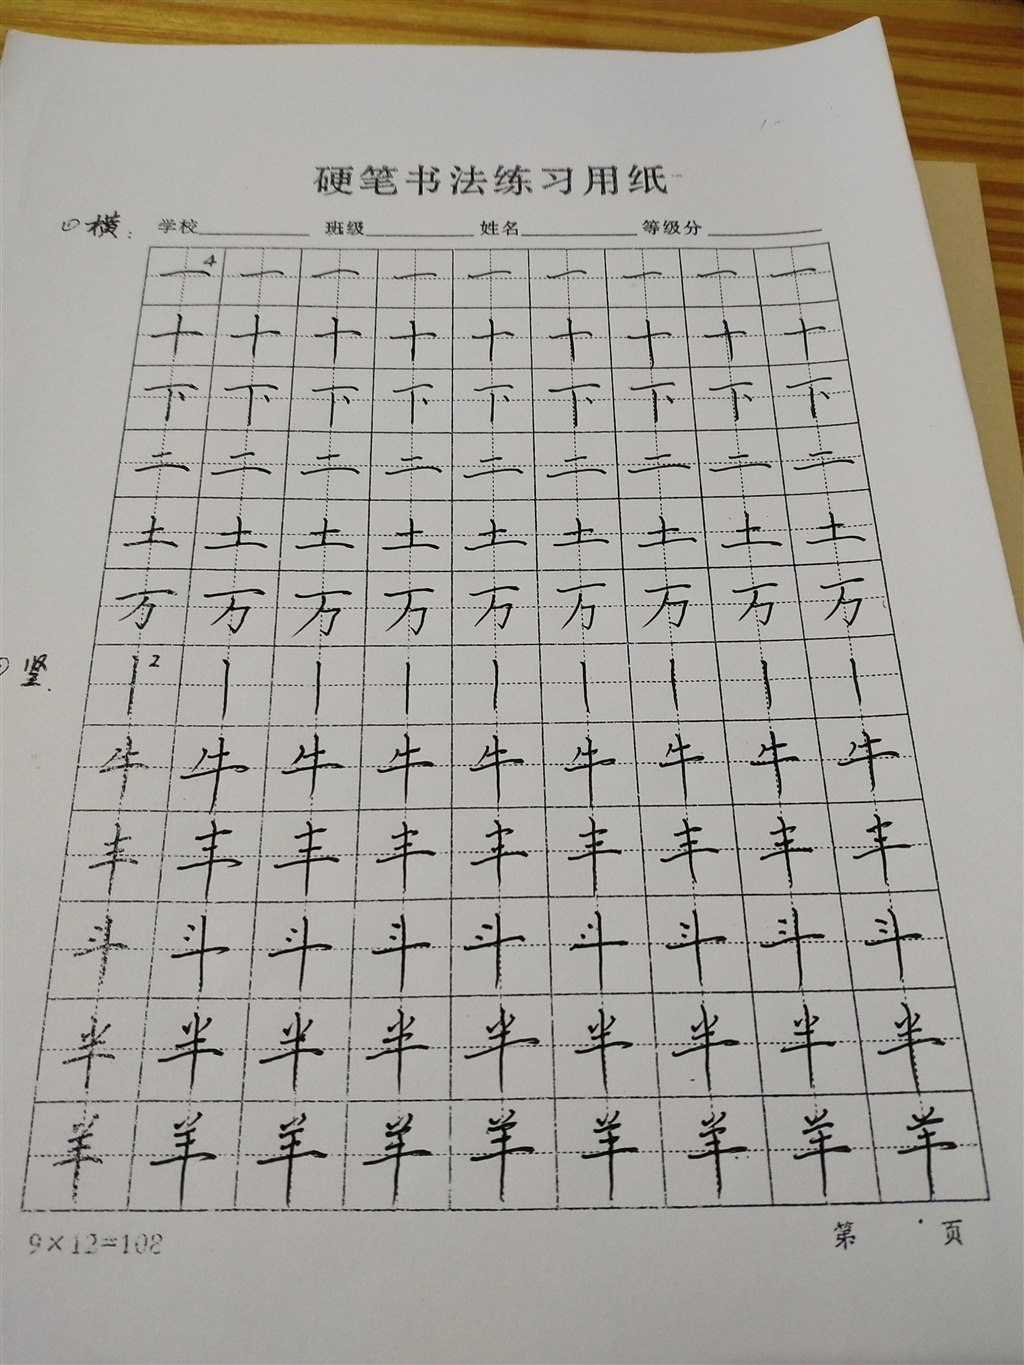 硬笔书法练习用纸
横: 学校 班级 姓名 等级分
一 4 一 一 一 一 一 一 一 一
十 十 十 十 十 十 十 十 十
下 下 下 下 下 下 下 下 下
二 二 二 二 二 二 二 二 二
土 土 土 土 土 土 土 土 土
万 万 万 万 万 万 万 万 万
竖. 丨 2 丨 丨 丨 丨 丨 丨 丨 丨
牛 牛 牛 牛 牛 牛 牛 牛 牛
丰 丰 丰 丰 丰 丰 丰 丰 丰
斗 斗 斗 斗 斗 斗 斗 斗 斗
半 半 半 半 半 半 半 半 半
羊 羊 羊 羊 羊 羊 羊 羊 羊
9×12=108 第 页